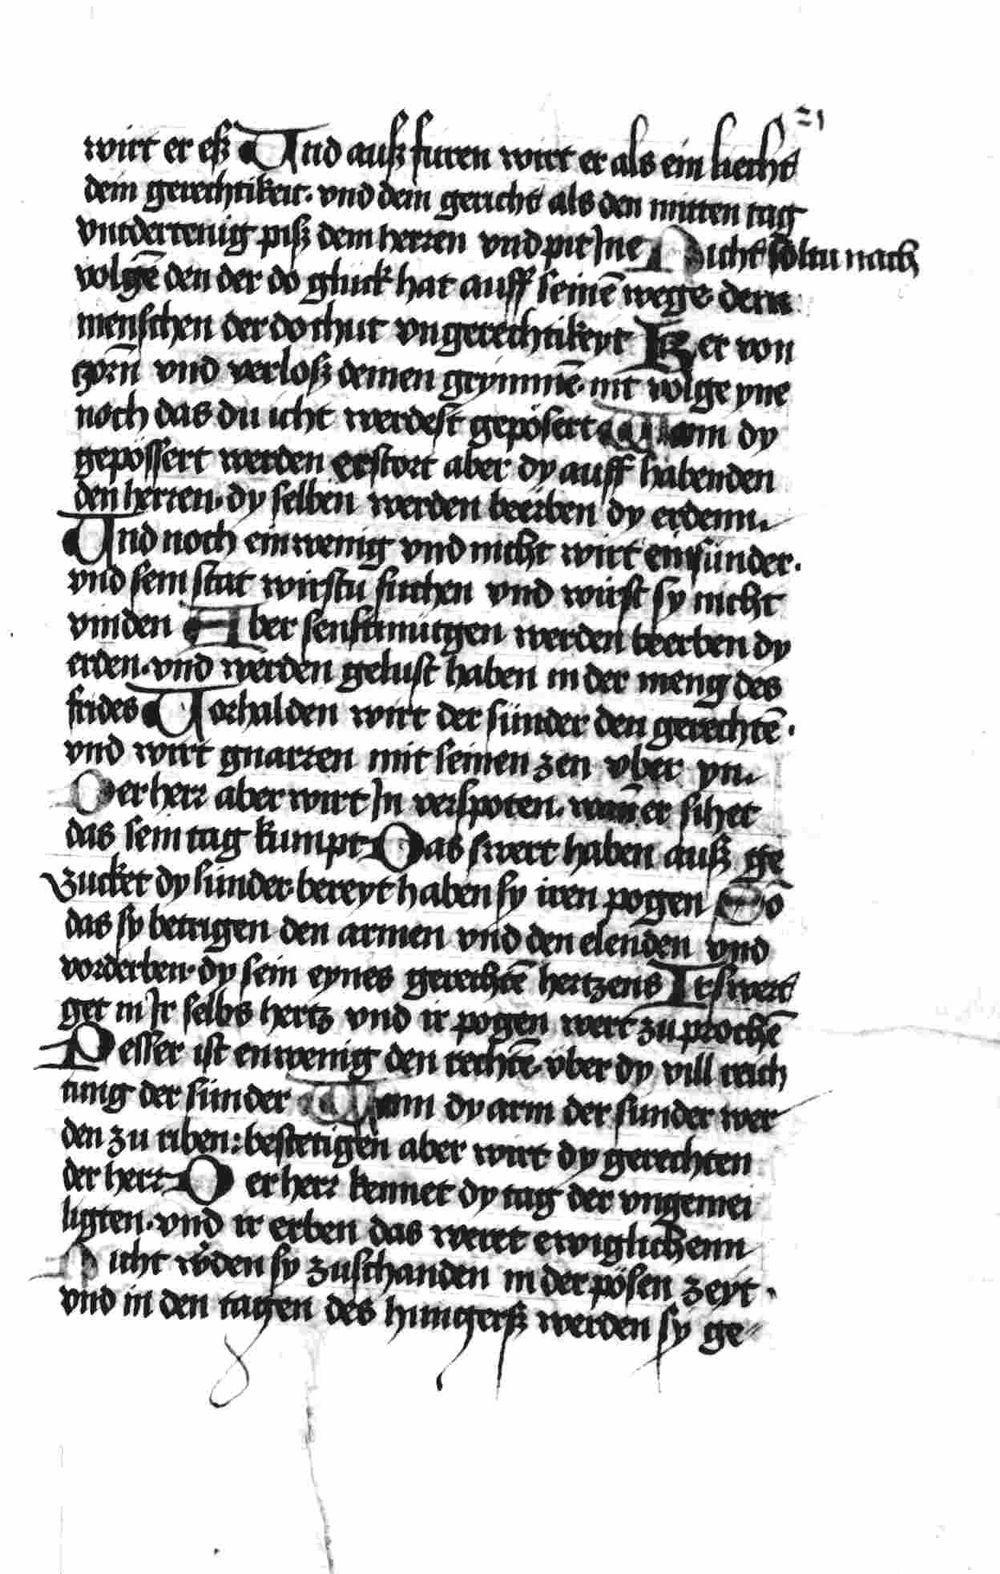 21
wirt er eß Und auß furen wirt er als ein liecht
dein gerechtikeit. vnd dein gericht als den mitten tag
vndertenig piß dem herren vnd pit Jne Nicht soltu nach
volgē den der do gluck hat auff seinē wege. dem
menschen der do thut vngerechtikeyt Ker von
zorn̄ vnd verloß deinen grymmē. nit volge yne
noch das du icht werdest gepösert Wann dy
gepössert werden erstort aber dy auff habenden
den herren. dy selben werden beerben dy erdenn.
Und noch ein wenig vnd nicht wirt ein sünder.
vnd sein stat wirstu suchen vnd wirst sy nicht
vinden Aber senftmutgen werden beerben dy
erden. vnd werden gelust haben in der meng des
frides Vorhalden wirt der sünder den gerechtē.
vnd wirt gnarren mit seinen zen vber yn.
Der herr aber wirt Jn verspoten. wan̄ er sihet
das sein tag kumpt Das swert haben auß ge
zucket dy sünder. bereyt haben sy iren pogen Do
das sy betrigen den armen vnd den elenden vnd
vorderben. dy sein eynes gerechtē hertzens Ir swert
get in Jr selbs hertz vnd ir pogen wert zu prochē
Pesser ist ein wenig den rechtē. vber dy vill reich
tung der sünder Wann dy arm der sunder wer
den zu riben: bestetigen aber wirt dy gerechten
der herr Der herr kennet dy tag der vngemei
ligten. vnd ir erben das weret ewiglichenn
Nicht w̄den sy zuschanden in der pösen zeyt.
vnd in den tagen des hungerß werden sy ge=